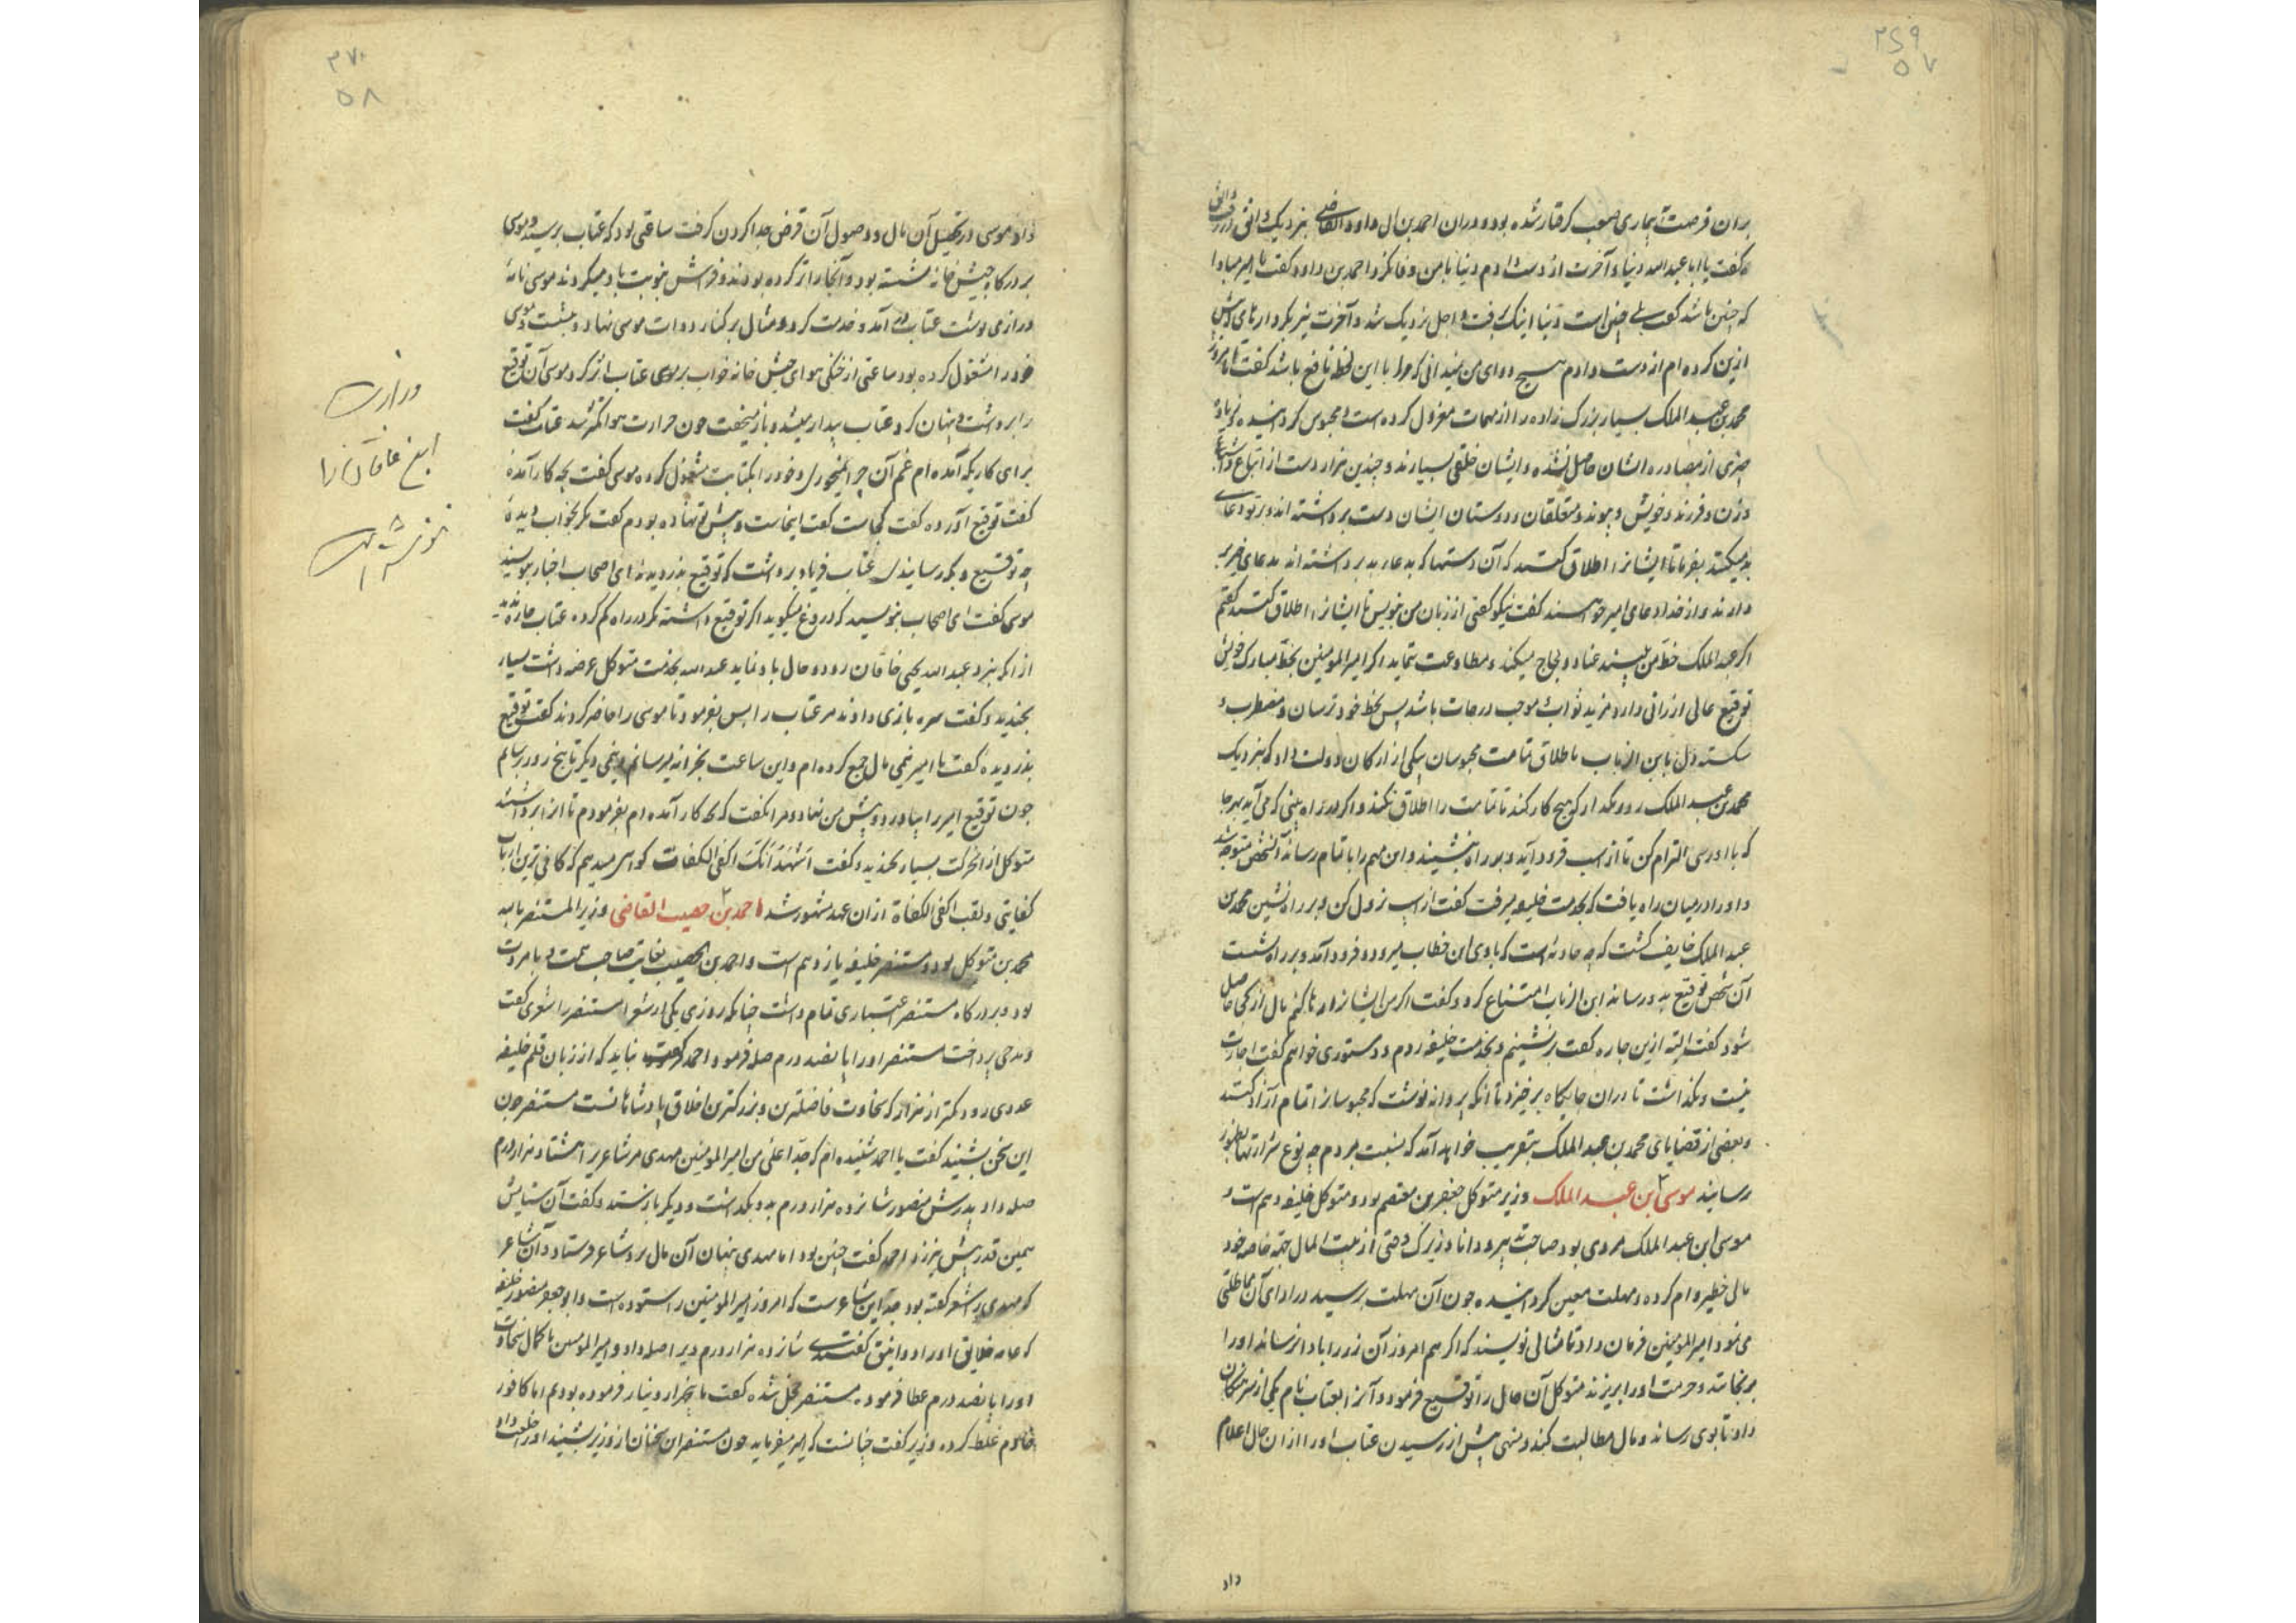 ۲۶۹
۵۷
بران فرصت بیماری صعب گرفتار شده بود و دران احمد بن ابی داود القاضی بنزدیک واثق در رفت واثق
گفت یا ابا عبدالله دنیا و آخرت از دست دادم دنیا با من وفا نکرد احمد بن داود گفت یا امیر مبادا
که چنین باشد گفت بلی چنین است دنیا اینک برفت و اجل نزدیک شد و آخرت نیز بکردارهای پیش
ازین کرده‌ام از دست دادم هیچ دوای من میدانی که مرا با این لحظ نافع باشد گفت یا امیر
محمد بن عبد الملک بسیار بزرگ زاده را از مهمات معزول کرده است و محبوس گردانیده و زیاده
چیزی از مصادره ایشان حاصل نشده و ایشان خلقی بسیارند و چندین هزار دست از اتباع و اشیاع
و زن و فرزند و خویش و پیوند و متعلقان و دوستان ایشان دست برداشته‌اند و بر تو دعای
بد میکنند بفرما تا ایشانرا اطلاق کنند که آن دستها که بدعا بد برداشته‌اند بدعای خیر بر
دارند و از خدا دعای امیر خواهند گفت نیکو گفتی از زبان من بنویس تا ایشانرا اطلاق کنند گفتم
اگر عبد الملک خط من بیند عناد و لجاج میکند و مطاوعت ننماید اگر امیر المومنین بخط مبارک خویش
توقیع عالی ارزانی دارد مزید ثواب و موجب درجات باشد پس بخط خود ترسان و مضطرب و
شکسته دل بابن الزیات باطلاق تمامت محبوسان بیکی از ارکان دولت داد که بنزدیک
محمد بن عبد الملک رو و مگذار که هیچ کار کند تا تمامت را اطلاق نکند و اگر در راه بینی که می آید بهر جا
که با او رسی التزام کن تا از اسب فرود آید و بر راه بنشیند و این مهم را باتمام رساند آن شخص متوجه شد
و او را در میان راه یافت که بخدمت خلیفه میرفت گفت از اسب نزول کن و بر راه نشین محمد بن
عبد الملک خایف گشت که چه حادثه است که با وی این خطاب میرود و فرود آمد و بر راه نشست
آن شخص توقیع بدو رساند ابن الزیات امتناع کرد و گفت اگر من ایشانرا رها کنم مال از کجا حاصل
شود گفت البته ازین چاره گفت بر نشینم و بخدمت خلیفه روم و دستوری خواهم گفت اجازت
نیست و نگذاشت تا از آن جایگاه برخیزد تا آنکه پروانه نوشت که محبوسانرا تمام آزاد کنند
و بعضی از قضایای محمد بن عبد الملک بتقریب خواهد آمد که نسبت بمردم چه نوع شرارتها بظهور
رسانید موسی بن عبد الملک وزیر متوکل جعفر بن معتصم بود و متوکل خلیفه دهم است و
موسی ابن عبد الملک مردی بود صاحب تدبیر و دانا و زیرک وقتی از بیت المال جهة خاصه خود
مالی خطیر وام کرده و مهلت معین گردانیده چون آن مهلت برسید در ادای آن مماطلتی
می نمود امیر المومنین فرمان داد تا مثالی نویسند که اگر هم امروز آن زر را باداء نرساند او را
برنجانند و حرمت او را بریزند متوکل آن مثال را توقیع فرمود و آنرا بعتاب نام یکی از سرهنگان
داد تا بوی رساند و مال مطالبت کند و منهی پیش از رسیدن عتاب او را از ان حال اعلام
داد
۲۷۰
۵۸
داد موسی در تحصیل آن مال و وصول آن قرض جدا کردن گرفت ساعتی بود که عتاب برسید و موسی
بر درگاه خیش خانه نشسته بود و آنجا را تر کرده بودند و فراش بنوبت باد میکردند موسی نامهٔ
درازی نوشت عتاب در آمد و خدمت کرد و مثال بر کنار دوات موسی نهاد و بنشست و موسی
خود را مشغول کرده بود ساعتی از خنکی هوای خیش خانه خواب بر موسی عتاب اثر کرد موسی آن توقیع
را برداشت و پنهان کرد عتاب بیدار میشد و باز میخفت چون حرارت هوا کمتر شد عتاب گفت
برای کاریکه آمده‌ام غم آن چرا نمیخوری و خود را بکتابت مشغول کرده موسی گفت بچه کار آمدهٔ
گفت توقیع آورده گفت کجاست گفت اینجاست و پیش تو نهاده بودم گفت مگر بخواب دیدهٔ
چه توقیع و بکه رسانیدی عتاب فریاد برداشت که توقیع بدزدیدند ای اصحاب اخبار بنویسید
موسی گفت ای اصحاب بنویسید که دروغ میگوید اگر توقیع داشته مگر در راه گم کرده عتاب چاره ندید
از آنکه بنزد عبد الله یحیی خاقان رود و حال باز نماید عبد الله بخدمت متوکل عرضه داشت بسیار
بخندید و گفت سره بازی دادند مر عتاب را پس بفرمود تا موسی را حاضر کردند گفت توقیع
بدزدیده گفت یا امیر نیمی مال جمع کرده‌ام و این ساعت بخزانه میرسانم و نیمی دیگر تا پنج روز برسانم
چون توقیع امیر را بیاورد و پیش من نهاد و مرا نگفت که بچه کار آمده‌ام بفرمودم تا انرا برداشتند
متوکل از آن حرکت بسیار بخندید و گفت اشهد انک اکفی الکفات گواهی میدهم که کافی ترین ارباب
کفایتی و لقب اکفی الکفاة ازان عهد مشهور شد احمد بن خصیب القاضی وزیر المستنصر بالله
محمد بن متوکل بود و مستنصر خلیفه یازدهم است و احمد بن الخصیب بغایت صاحب همت و بامروت
بود و بر درگاه مستنصر اعتباری تمام داشت چنانکه روزی یکی از شعرا مستنصر را شعری گفت
و مدحی پرداخت مستنصر او را پانصد درم صله فرمود احمد گفت نباید که از زبان قلم خلیفه
عددی رود کمتر از هزار که سخاوت فاضلترین و بزرگترین اخلاق پادشاهانست مستنصر چون
این سخن بشنید گفت یا احمد شنیده‌ام که جد اعلی من امیر المومنین مهدی مر شاعریرا هشتاد هزار درم
صله داد پدرش منصور شانزده هزار درم بدو بگذاشت و دیگر باز ستد و گفت آن ستایش
همین قدر بیش نیرزد احمد گفت چنین بود اما مهدی پنهان آن مال بر شاعر فرستاد و آن شاعر
که مهدی را شعر گفته بود جد این شاعرست که امروز امیر المومنین را ستوده است و ابو جعفر منصور خلیفه
که عامه خلایق او را دوانیق گفتندی شانزده هزار درم ویرا صله داد و امیر المومنین با کمال سخاوت
او را پانصد درم عطا فرموده مستنصر خجل شده گفت ما پنج هزار دینار فرموده بودیم اما کافور
خادم غلط کرده وزیر گفت چنانست که امیر میفرماید چون مستنصر این سخنان از وزیر بشنید او را خلعت داد
وزارت